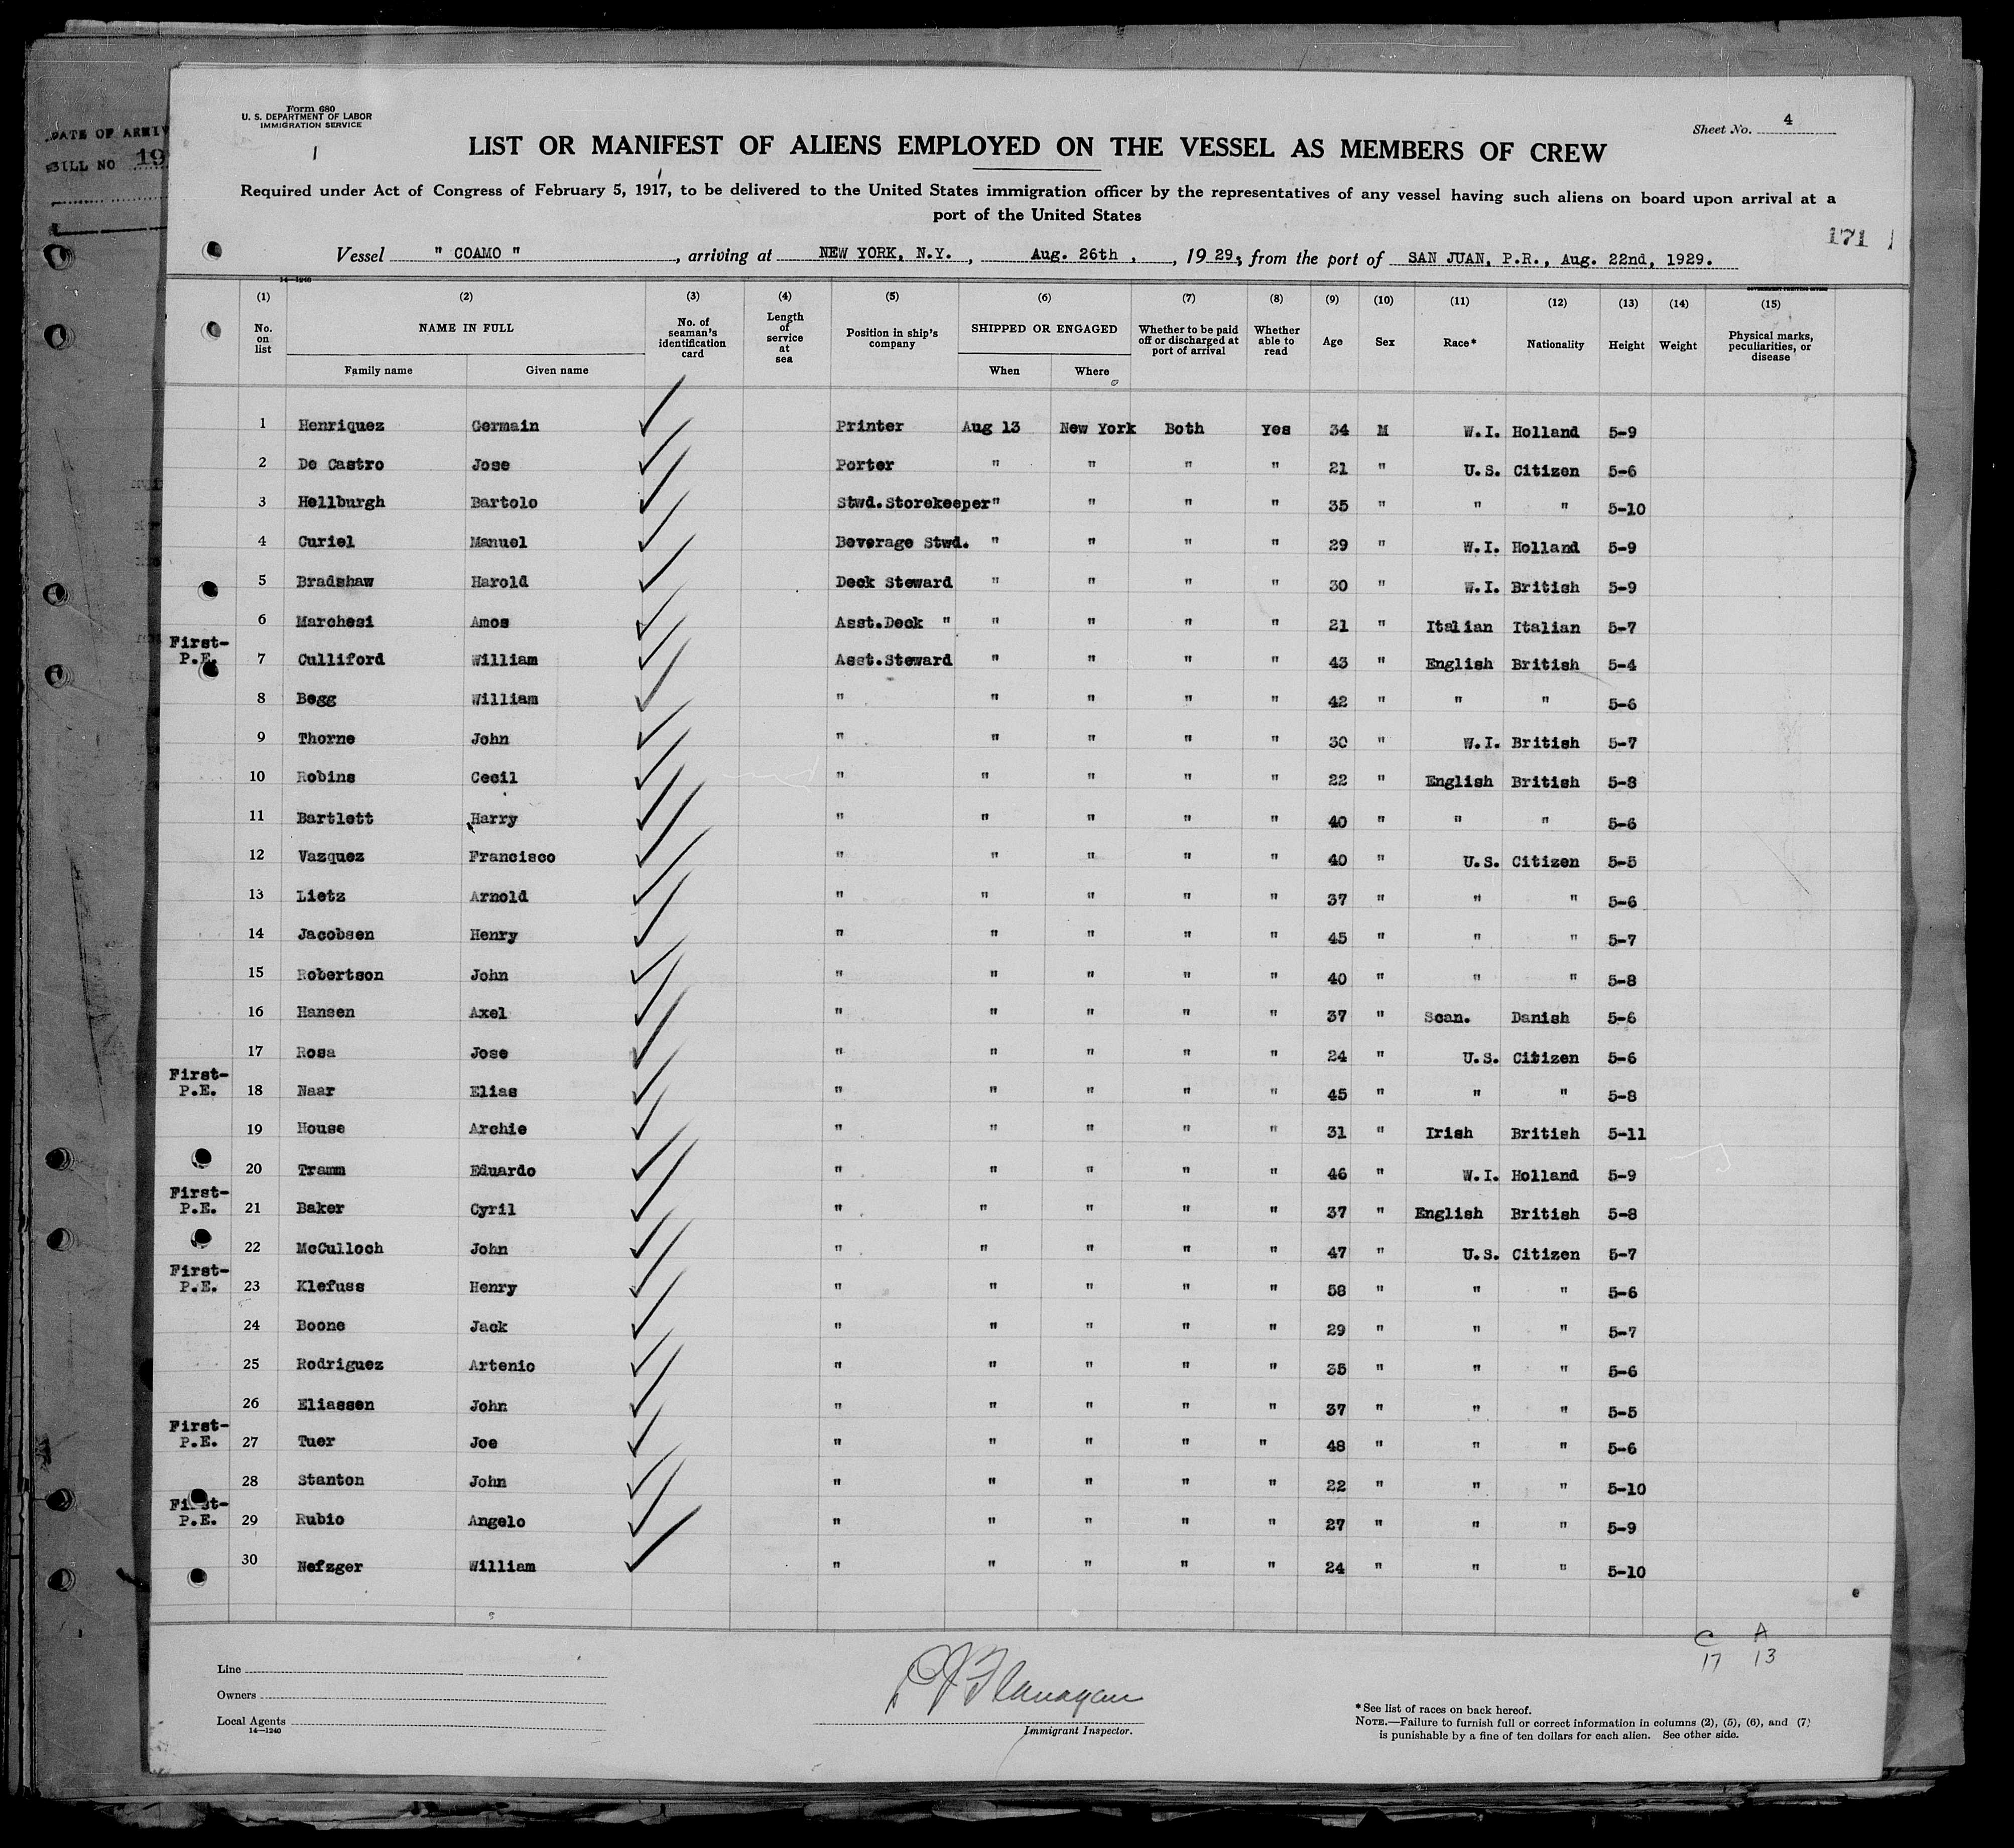 DATE OF ARRIV
BILL NO 19
Form 680
U. S. DEPARTMENT OF LABOR
IMMIGRATION SERVICE
Sheet No. 4
LIST OR MANIFEST OF ALIENS EMPLOYED ON THE VESSEL AS MEMBERS OF CREW
Required under Act of Congress of February 5, 1917, to be delivered to the United States immigration officer by the representatives of any vessel having such aliens on board upon arrival at a
port of the United States
171
Vessel " COAMO ", arriving at NEW YORK, N.Y., Aug. 26th, , 1929, from the port of SAN JUAN, P.R., Aug. 22nd, 1929.
14—1240
(1) (2) (3) (4) (5) (6) (7) (8) (9) (10) (11) (12) (13) (14) (15)
No. on list NAME IN FULL Family name Given name No. of seaman's identification card Length of service at sea Position in ship's company SHIPPED OR ENGAGED When Where Whether to be paid off or discharged at port of arrival Whether able to read Age Sex Race* Nationality Height Weight Physical marks, peculiarities, or disease
1 Henriquez Germain Printer Aug 13 New York Both Yes 34 M W.I. Holland 5-9
2 De Castro Jose Porter " " " " 21 " U.S. Citizen 5-6
3 Hellburgh Bartolo Stwd.Storekeeper " " " " 35 " " " 5-10
4 Curiel Manuel Beverage Stwd. " " " " 29 " W.I. Holland 5-9
5 Bradshaw Harold Deck Steward " " " " 30 " W.I. British 5-9
6 Marchesi Amos Asst.Deck " " " " " 21 " Italian Italian 5-7
First-P.E. 7 Culliford William Asst.Steward " " " " 43 " English British 5-4
8 Begg William " " " " " 42 " " " 5-6
9 Thorne John " " " " " 30 " W.I. British 5-7
10 Robins Cecil " " " " " 22 " English British 5-8
11 Bartlett Harry " " " " " 40 " " " 5-6
12 Vazquez Francisco " " " " " 40 " U.S. Citizen 5-5
13 Lietz Arnold " " " " " 37 " " " 5-6
14 Jacobsen Henry " " " " " 45 " " " 5-7
15 Robertson John " " " " " 40 " " " 5-8
16 Hansen Axel " " " " " 37 " Scan. Danish 5-6
17 Rosa Jose " " " " " 24 " U.S. Citizen 5-6
First-P.E. 18 Naar Elias " " " " " 45 " " " 5-8
19 House Archie " " " " " 31 " Irish British 5-11
20 Tramm Eduardo " " " " " 46 " W.I. Holland 5-9
First-P.E. 21 Baker Cyril " " " " " 37 " English British 5-8
22 McCulloch John " " " " " 47 " U.S. Citizen 5-7
First-P.E. 23 Klefuss Henry " " " " " 58 " " " 5-6
24 Boone Jack " " " " " 29 " " " 5-7
25 Rodriguez Artenio " " " " " 35 " " " 5-6
26 Eliassen John " " " " " 37 " " " 5-5
First-P.E. 27 Tuer Joe " " " " " 48 " " " 5-6
28 Stanton John " " " " " 22 " " " 5-10
First-P.E. 29 Rubio Angelo " " " " " 27 " " " 5-9
30 Nefzger William " " " " " 24 " " " 5-10
C A
17 13
Line
Owners
Local Agents
14—1240
Flanagan
Immigrant Inspector.
* See list of races on back hereof.
NOTE.—Failure to furnish full or correct information in columns (2), (5), (6), and (7)
is punishable by a fine of ten dollars for each alien. See other side.